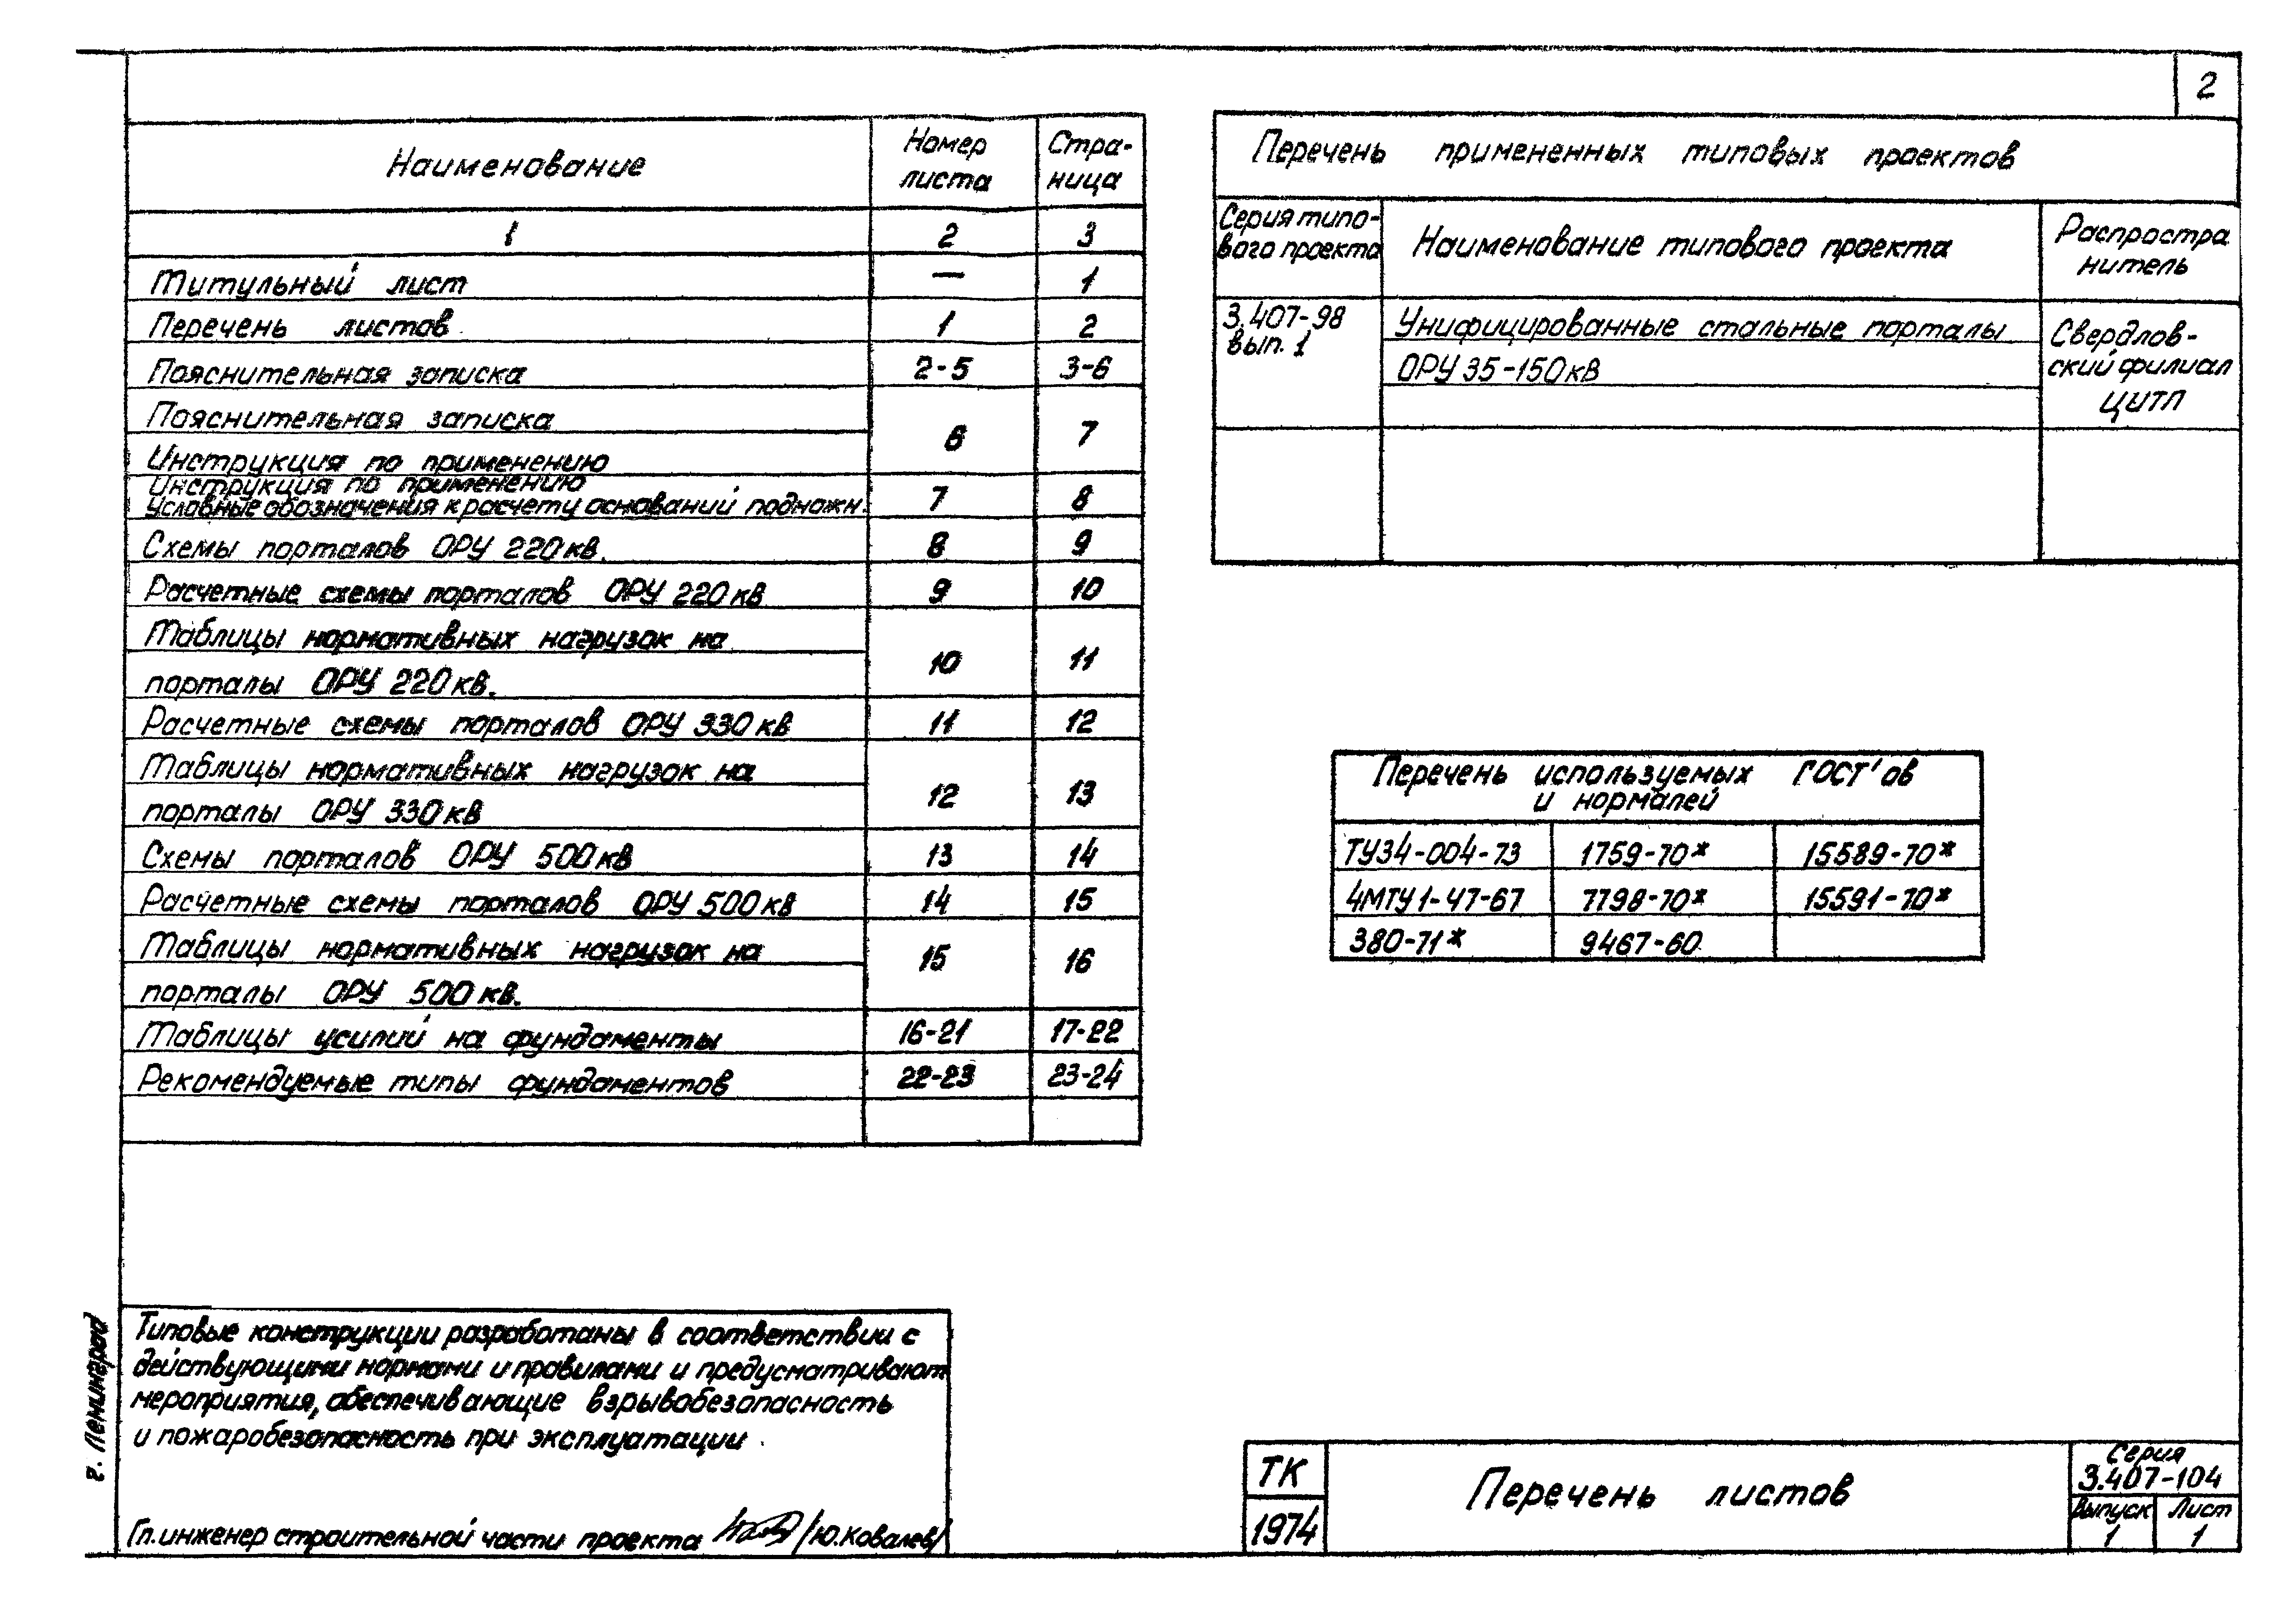 2
Наименование
Номер листа
Стра-ница
1 2 3
Титульный лист — 1
Перечень листов 1 2
Пояснительная записка 2-5 3-6
Пояснительная записка
Инструкция по применению 6 7
Инструкция по применению
Условные обозначения к расчету оснований подножн. 7 8
Схемы порталов ОРУ 220кв. 8 9
Расчетные схемы порталов ОРУ 220кв 9 10
Таблицы нормативных нагрузок на
порталы ОРУ 220кв. 10 11
Расчетные схемы порталов ОРУ 330кв 11 12
Таблицы нормативных нагрузок на
порталы ОРУ 330кв 12 13
Схемы порталов ОРУ 500кв 13 14
Расчетные схемы порталов ОРУ 500кв 14 15
Таблицы нормативных нагрузок на
порталы ОРУ 500кв. 15 16
Таблицы усилий на фундаменты 16-21 17-22
Рекомендуемые типы фундаментов 22-23 23-24
Перечень примененных типовых проектов
Серия типо-
вого проекта
Наименование типового проекта
Распростра
нитель
3.407-98
вып. 1
Унифицированные стальные порталы
ОРУ 35-150кв
Свердлов-
ский филиал
ЦИТП
Перечень используемых ГОСТ'ов
и нормалей
ТУ34-004-73 1759-70* 15589-70*
4МТУ1-47-67 7798-70* 15591-70*
380-71* 9467-60
г. Ленинград
Типовые конструкции разработаны в соответствии с
действующими нормами и правилами и предусматривают
мероприятия, обеспечивающие взрывобезопасность
и пожаробезопасность при эксплуатации.
Гл.инженер строительной части проекта /Ю.Ковалев/
ТК
1974
Перечень листов
Серия
3.407-104
Выпуск Лист
1 1